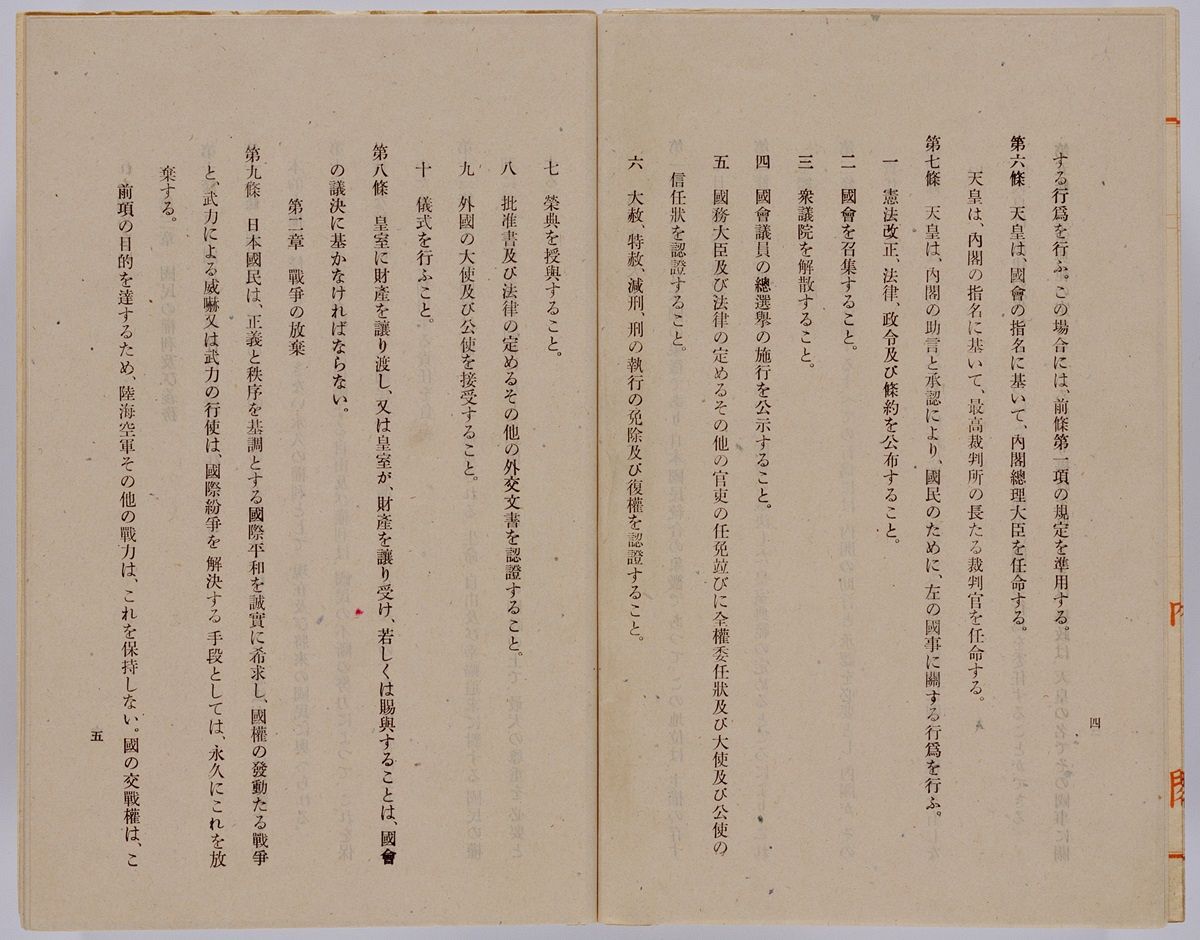 する行爲を行ふ。この場合には、前條第一項の規定を準用する。
第六條　天皇は、國會の指名に基いて、內閣總理大臣を任命する。
天皇は、內閣の指名に基いて、最高裁判所の長たる裁判官を任命する。
第七條　天皇は、內閣の助言と承認により、國民のために、左の國事に關する行爲を行ふ。
一　憲法改正、法律、政令及び條約を公布すること。
二　國會を召集すること。
三　衆議院を解散すること。
四　國會議員の總選擧の施行を公示すること。
五　國務大臣及び法律の定めるその他の官吏の任免竝びに全權委任狀及び大使及び公使の
信任狀を認證すること。
六　大赦、特赦、減刑、刑の執行の免除及び復權を認證すること。
四
七　榮典を授與すること。
八　批准書及び法律の定めるその他の外交文書を認證すること。
九　外國の大使及び公使を接受すること。
十　儀式を行ふこと。
第八條　皇室に財產を讓り渡し、又は皇室が、財產を讓り受け、若しくは賜與することは、國會
の議決に基かなければならない。
第二章　戰爭の放棄
第九條　日本國民は、正義と秩序を基調とする國際平和を誠實に希求し、國權の發動たる戰爭
と、武力による威嚇又は武力の行使は、國際紛爭を解決する手段としては、永久にこれを放
棄する。
前項の目的を達するため、陸海空軍その他の戰力は、これを保持しない。國の交戰權は、こ
五